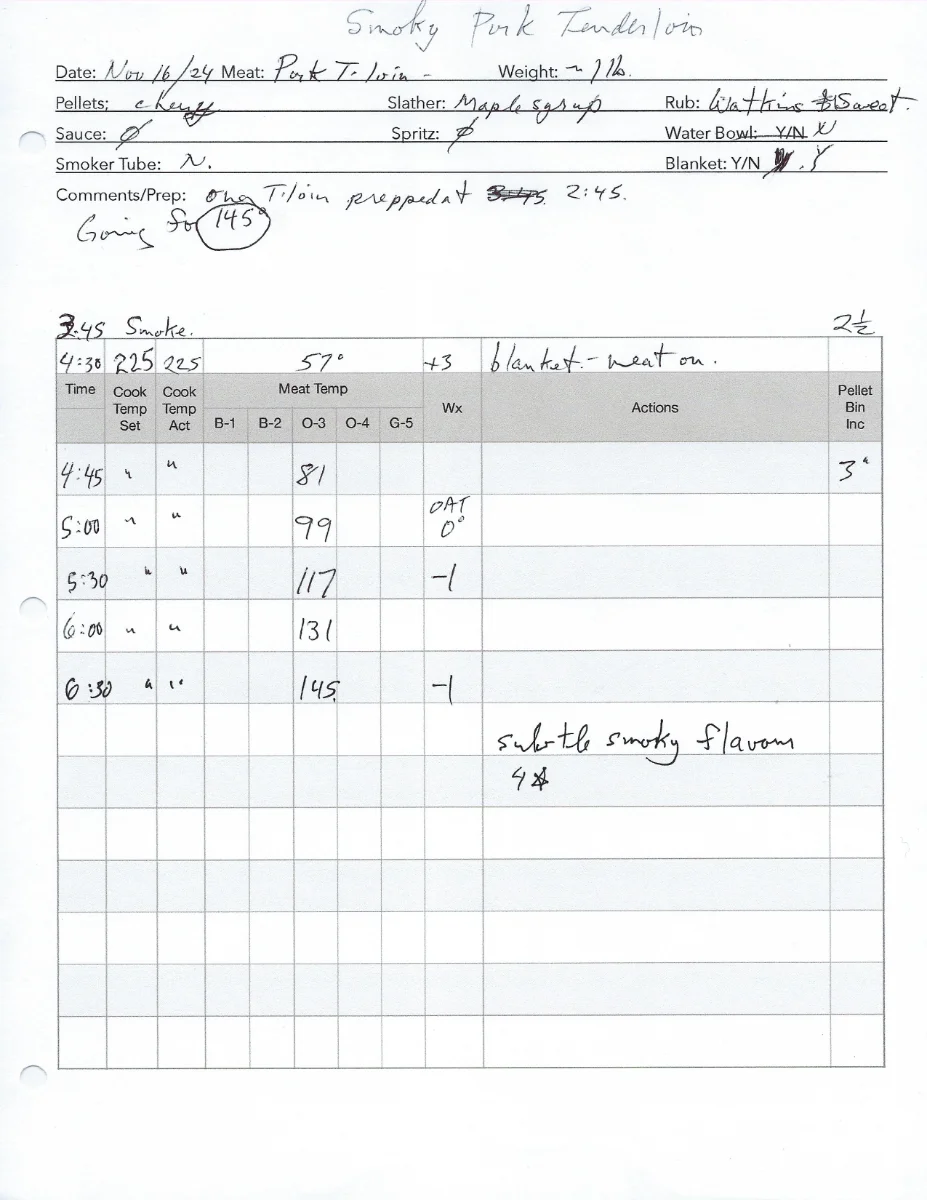 Smoky Pork Tenderloin
Date: Nov 16/24 Meat: Pork T-loin - Weight: ~ 1 lb.
Pellets; cherry Slather: Maple syrup Rub: Watkins Sweet.
Sauce: ∅ Spritz: ∅ Water Bowl: Y/N N
Smoker Tube: N. Blanket: Y/N . Y
Comments/Prep: one T-loin prepped at 2:45.
Going for 145°
3:45 Smoke. 2½
4:30 225 225 57° +3 blanket - meat on.
Time Cook Temp Set Cook Temp Act Meat Temp B-1 B-2 O-3 O-4 G-5 Wx Actions Pellet Bin Inc
4:45 " " 81 3"
5:00 " " 99 OAT 0°
5:30 " " 117 -1
6:00 " " 131
6:30 " " 145 -1
subtle smoky flavour
4☆